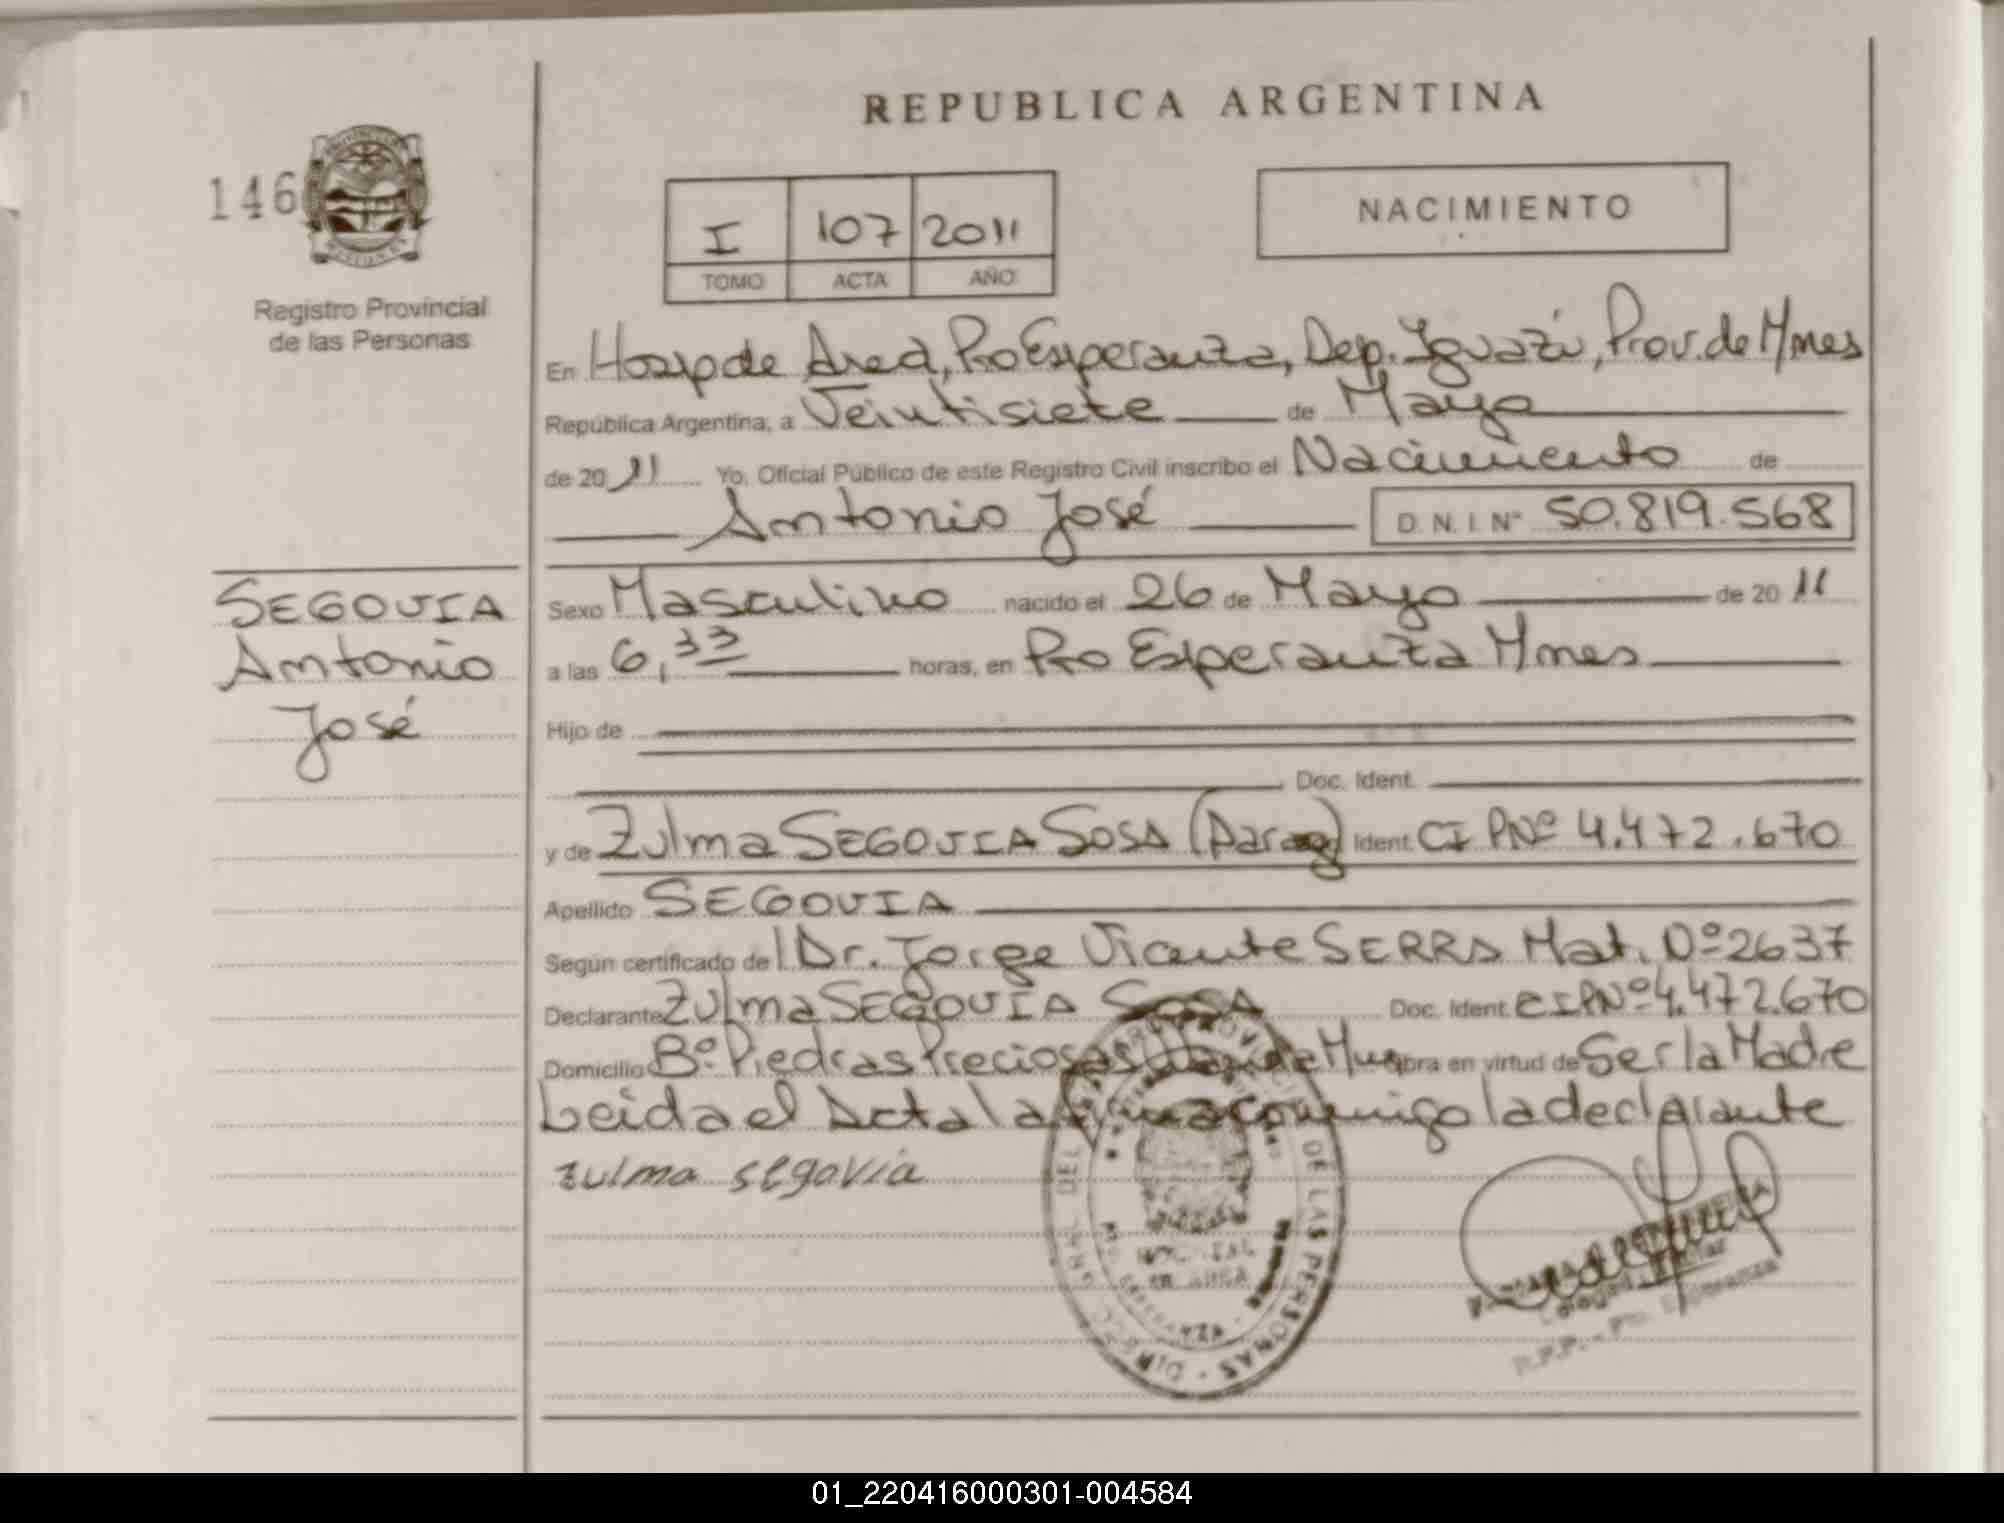 REPUBLICA ARGENTINA
146
NACIMIENTO
I 107 2011
TOMO ACTA AÑO
Registro Provincial
de las Personas
En Hosp de Area, Pto Esperanza, Dep. Iguazú, Prov. de Mnes
República Argentina, a Veintisiete de Mayo
de 2011 Yo, Oficial Público de este Registro Civil inscribo el Nacimiento de
Antonio José D.N.I. Nº 50.819.568
SEGOVIA
Antonio
José
Sexo Masculino nacido el 26 de Mayo de 2011
a las 6,33 horas, en Pto Esperanza Mnes
Hijo de
Doc. Ident.
y de Zulma SEGOVIA SOSA (Parag) Ident. CI PNº 4.472.670
Apellido SEGOVIA
Según certificado del Dr. Jorge Vicente SERRA Mat. Nº 2637
Declarante Zulma SEGOVIA SOSA Doc. Ident. CIPNº 4.472.670
Domicilio Bº Piedras Preciosas obra en virtud de Ser la Madre
Leida el Acta la firma conmigo la declarante
zulma segovia
DIREC. GRAL DEL REGISTRO PROVINCIAL DE LAS PERSONAS
R.P.P. - Pto. Esperanza
01_220416000301-004584